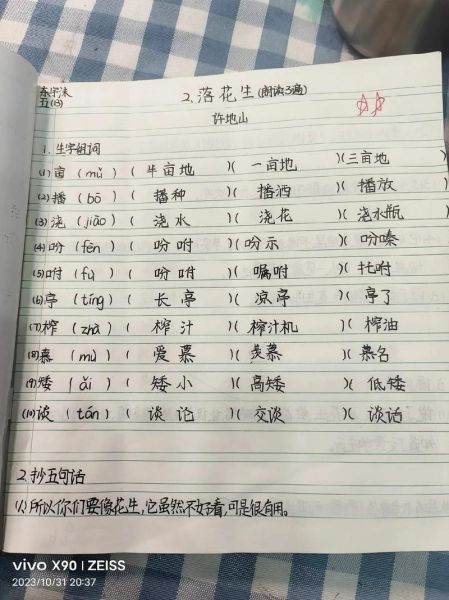 2.落花生(朗读3遍)
五(3)
许地山
1.生字组词
(1)亩(mǔ)(半亩地)(一亩地)(三亩地)
(2)播(bō)(播种)(播洒)(播放)
(3)浇(jiāo)(浇水)(浇花)(浇水瓶)
(4)吩(fēn)(吩咐)(吩示)(吩嗪)
(5)咐(fù)(吩咐)(嘱咐)(托咐)
(6)亭(tíng)(长亭)(凉亭)(亭子)
(7)榨(zhà)(榨汁)(榨汁机)(榨油)
(8)慕(mù)(爱慕)(羡慕)(慕名)
(9)矮(ǎi)(矮小)(高矮)(低矮)
(10)谈(tán)(谈论)(交谈)(谈话)
2.抄五句话
(1)所以你们要像花生,它虽然不好看,可是很有用。
vivo X90 | ZEISS
2023/10/31 20:37